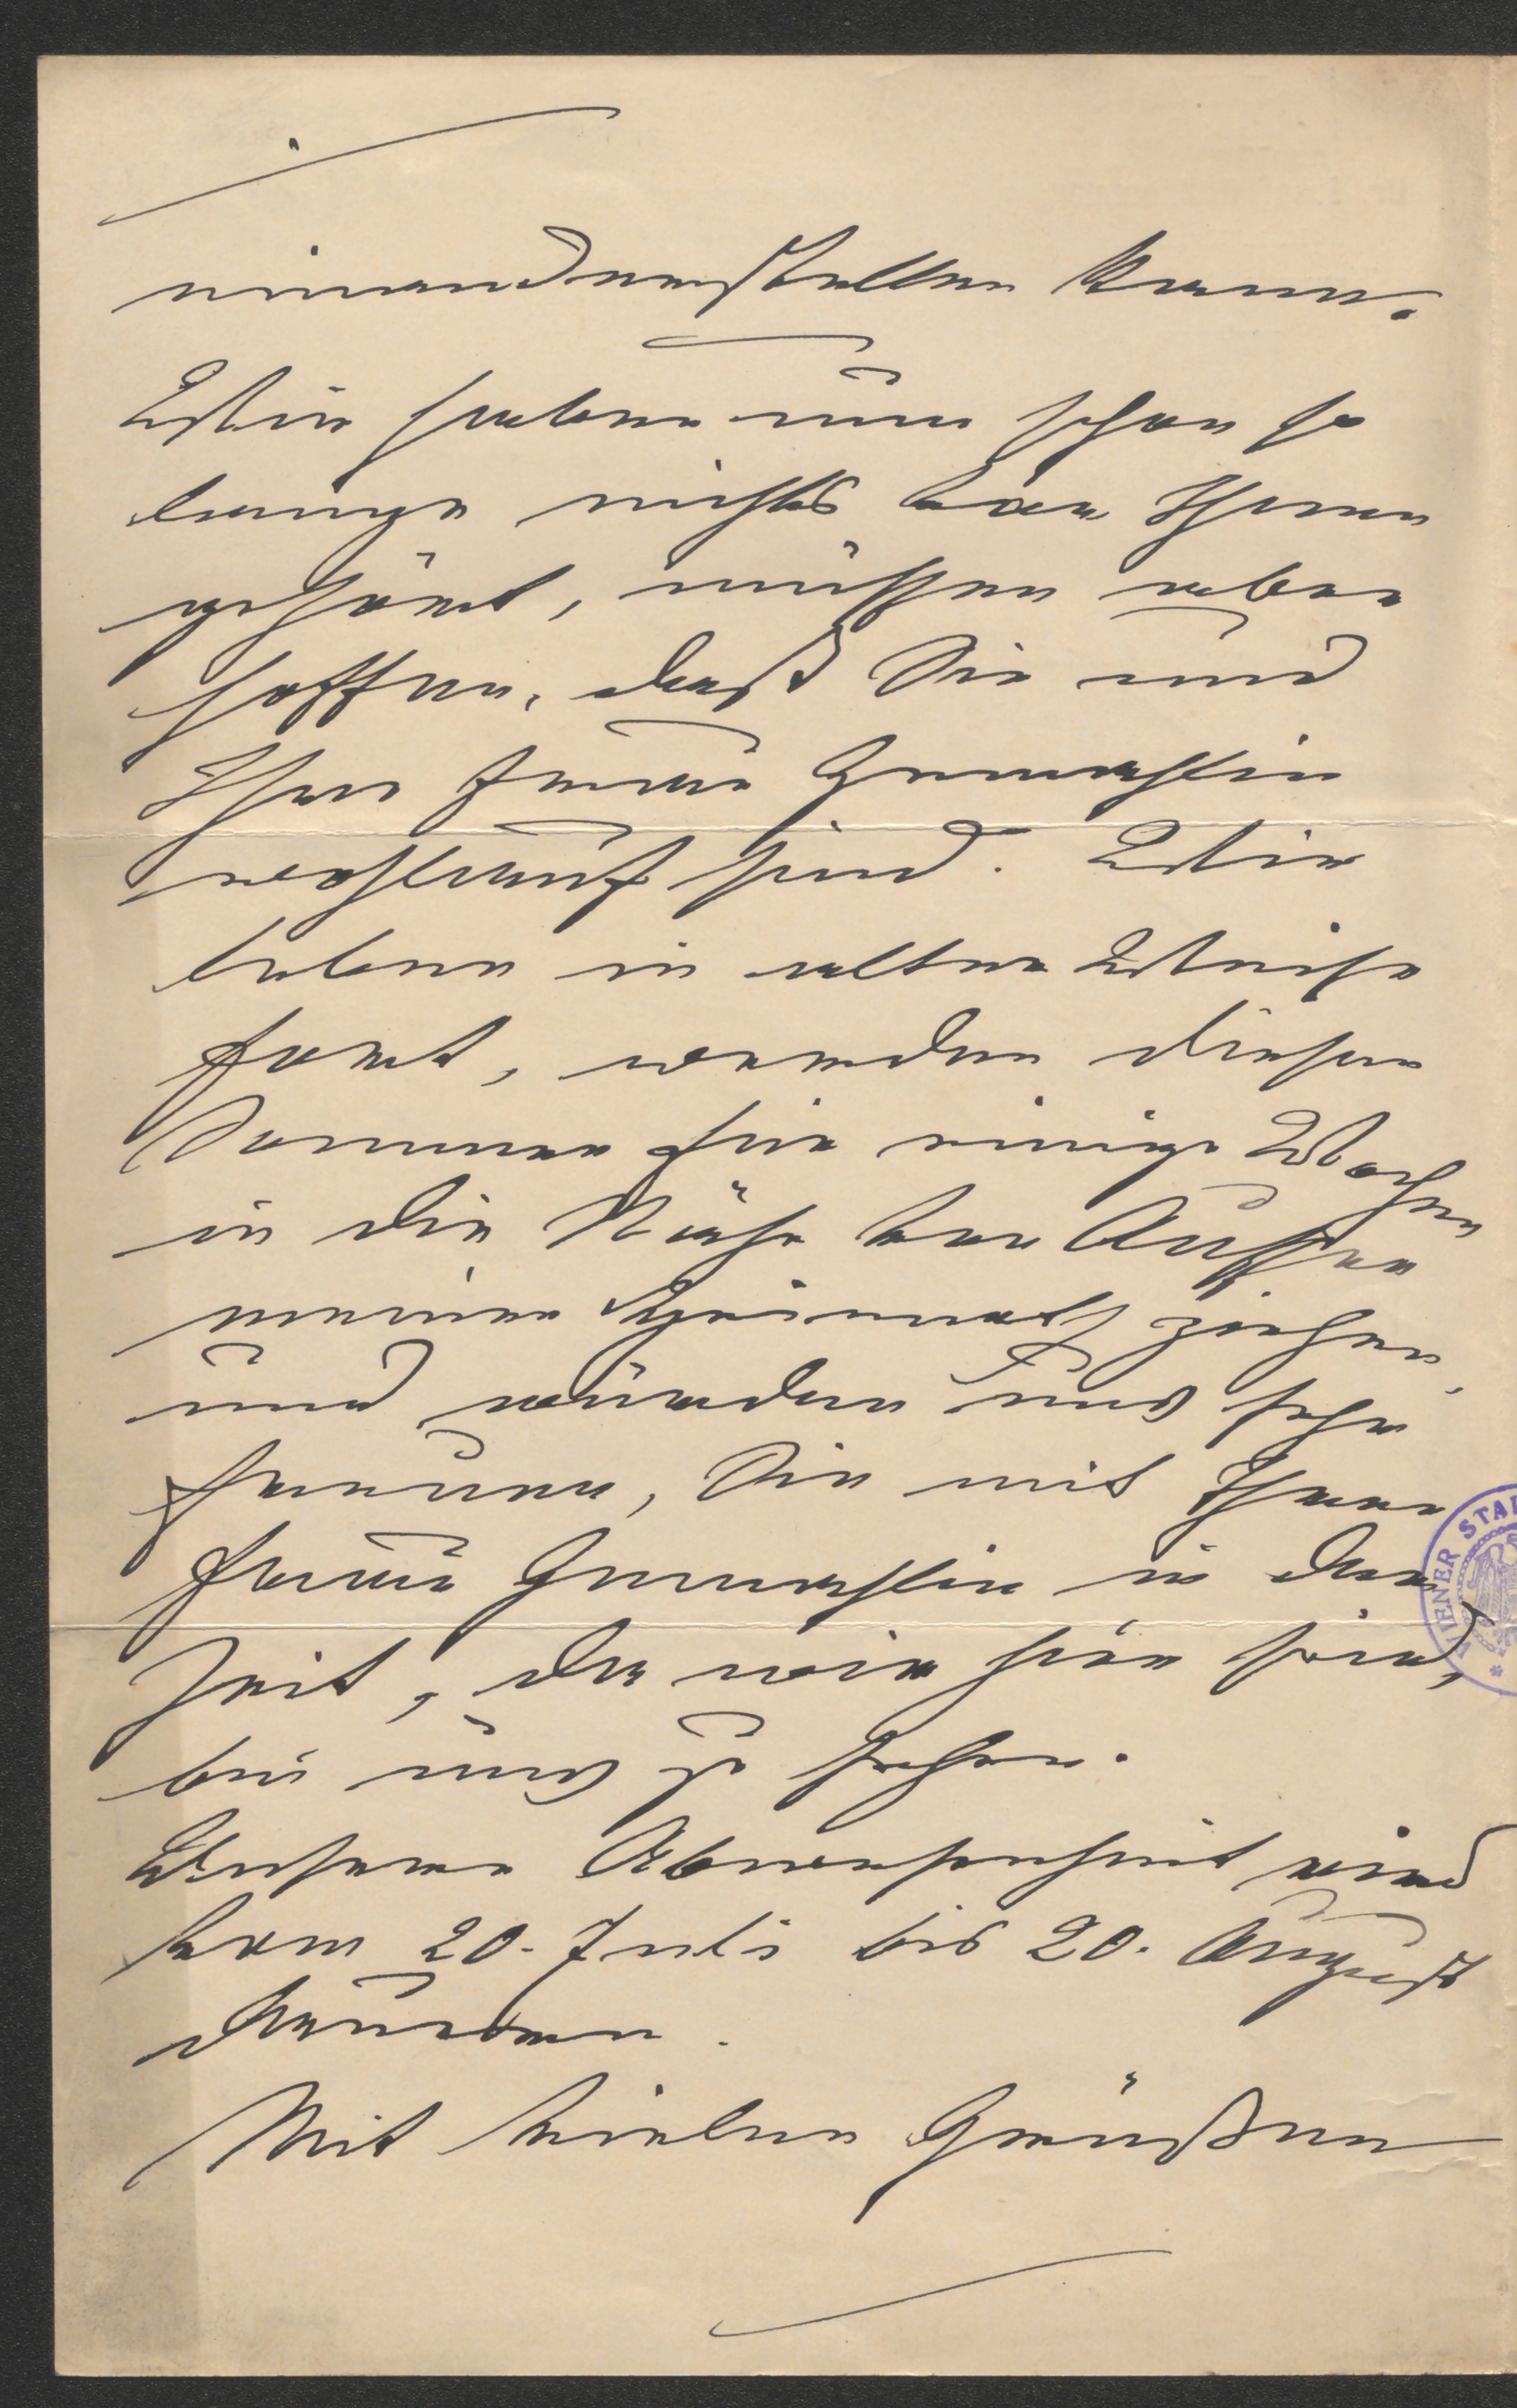 einanderstellen kann.
Wir haben nun schon so
lange nichts von Ihnen
gehört, müssen aber
hoffen, dass Sie und
Ihre Frau Gemahlin
wohlauf sind. Wir
leben in alter Weise
fort, werden diesen
Sommer für einige Wochen
in die Nähe von Aussee
meiner Heimat ziehen,
und würden uns sehr
freuen, Sie mit Ihrer
Frau Gemahlin in der
Zeit, da wir hier sind,
bei uns zu sehen.
Unsere Abwesenheit wird
vom 20. Juli bis 20. August
dauern.
Mit vielen Grüßen
WIENER STA